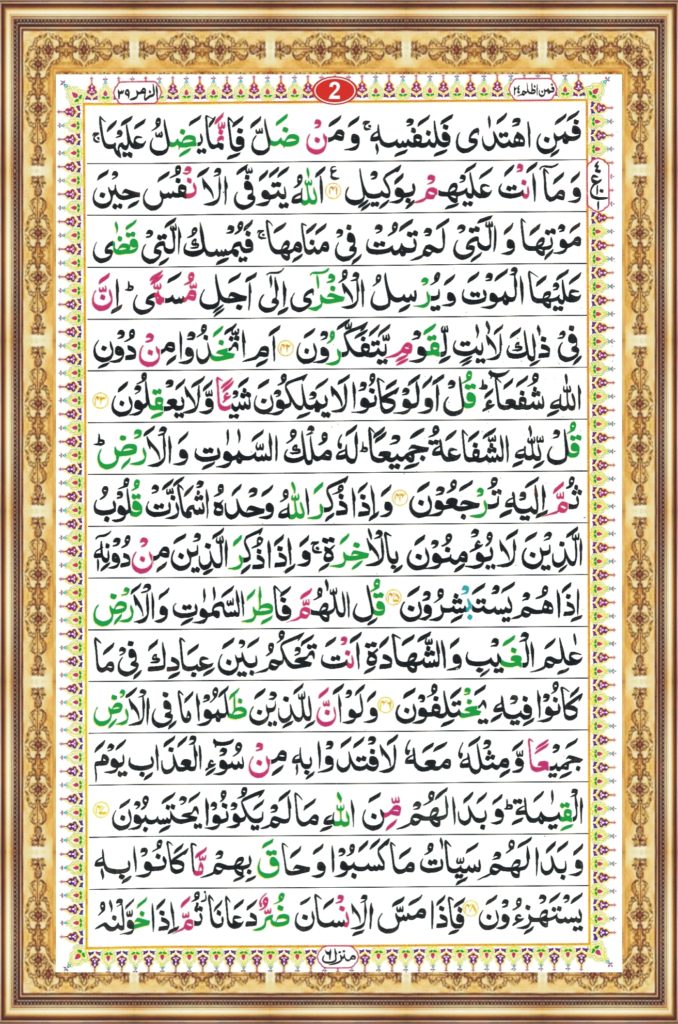 فمن اظلم ۲۴
2
الزمر ۳۹
فَمَنِ اهْتَدٰى فَلِنَفْسِهٖ ۚ وَ مَنْ ضَلَّ فَاِنَّمَا يَضِلُّ عَلَيْهَا ۚ
وَ مَاۤ اَنْتَ عَلَيْهِمْ بِوَكِيْلٍ ﴿۴۱﴾ اَللّٰهُ يَتَوَفَّى الْاَنْفُسَ حِيْنَ
مَوْتِهَا وَ الَّتِىْ لَمْ تَمُتْ فِىْ مَنَامِهَا ۚ فَيُمْسِكُ الَّتِىْ قَضٰى
عَلَيْهَا الْمَوْتَ وَ يُرْسِلُ الْاُخْرٰٓى اِلٰٓى اَجَلٍ مُّسَمًّى ؕ اِنَّ
فِىْ ذٰلِكَ لَاٰيٰتٍ لِّقَوْمٍ يَّتَفَكَّرُوْنَ ﴿۴۲﴾ اَمِ اتَّخَذُوْا مِنْ دُوْنِ
اللّٰهِ شُفَعَآءَ ؕ قُلْ اَوَلَوْ كَانُوْا لَا يَمْلِكُوْنَ شَيْـًٔا وَّلَا يَعْقِلُوْنَ ﴿۴۳﴾
قُلْ لِّلّٰهِ الشَّفَاعَةُ جَمِيْعًا ؕ لَهٗ مُلْكُ السَّمٰوٰتِ وَ الْاَرْضِ ؕ
ثُمَّ اِلَيْهِ تُرْجَعُوْنَ ﴿۴۴﴾ وَ اِذَا ذُكِرَ اللّٰهُ وَحْدَهُ اشْمَاَزَّتْ قُلُوْبُ
الَّذِيْنَ لَا يُؤْمِنُوْنَ بِالْاٰخِرَةِ ۚ وَ اِذَا ذُكِرَ الَّذِيْنَ مِنْ دُوْنِهٖۤ
اِذَا هُمْ يَسْتَبْشِرُوْنَ ﴿۴۵﴾ قُلِ اللّٰهُمَّ فَاطِرَ السَّمٰوٰتِ وَ الْاَرْضِ
عٰلِمَ الْغَيْبِ وَ الشَّهَادَةِ اَنْتَ تَحْكُمُ بَيْنَ عِبَادِكَ فِىْ مَا
كَانُوْا فِيْهِ يَخْتَلِفُوْنَ ﴿۴۶﴾ وَ لَوْ اَنَّ لِلَّذِيْنَ ظَلَمُوْا مَا فِى الْاَرْضِ
جَمِيْعًا وَّ مِثْلَهٗ مَعَهٗ لَافْتَدَوْا بِهٖ مِنْ سُوْٓءِ الْعَذَابِ يَوْمَ
الْقِيٰمَةِ ؕ وَ بَدَا لَهُمْ مِّنَ اللّٰهِ مَا لَمْ يَكُوْنُوْا يَحْتَسِبُوْنَ ﴿۴۷﴾
وَ بَدَا لَهُمْ سَيِّاٰتُ مَا كَسَبُوْا وَ حَاقَ بِهِمْ مَّا كَانُوْا بِهٖ
يَسْتَهْزِءُوْنَ ﴿۴۸﴾ فَاِذَا مَسَّ الْاِنْسَانَ ضُرٌّ دَعَانَا ۫ ثُمَّ اِذَا خَوَّلْنٰهُ
منزل ۶